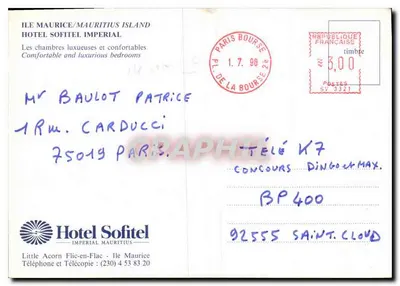 ILE MAURICE/MAURITIUS ISLAND
HOTEL SOFITEL IMPERIAL
Les chambres luxueuses et confortables
Comfortable and luxurious bedrooms
PARIS BOURSE
1. 7. 98
PL. DE LA BOURSE 2e
REPUBLIQUE
FRANCAISE
timbre
3,00
POSTES
Mr BAULOT PATRICE
1 Rm. CARDUCCI
75019 PARIS.
TÉLÉ K7
CONCOURS DINGO et MAX.
BP 400
92555 SAINT. CLOUD
Hotel Sofitel
IMPERIAL MAURITIUS
Little Acorn Flic-en-Flac - Ile Maurice
Téléphone et Télécopie : (230) 4 53 83 20